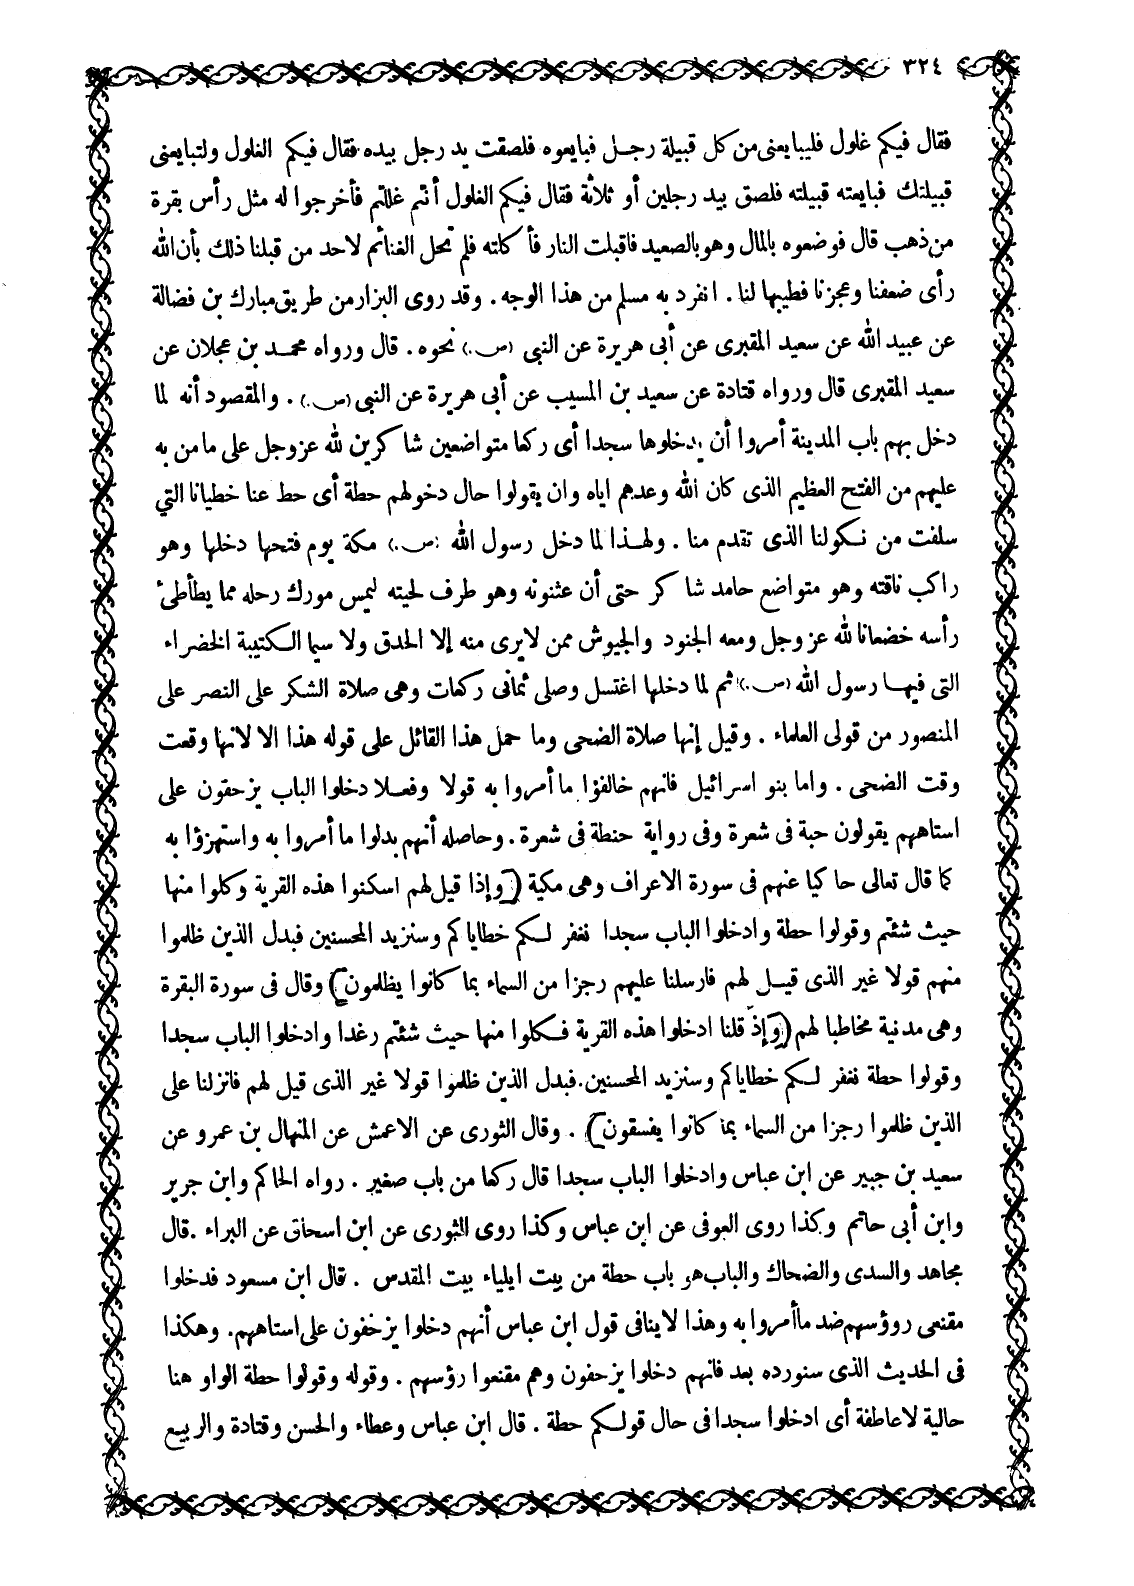 ٣٢٤
فقال فيكم غلول فليبايعنى من كل قبيلة رجل فبايعوه فلصقت يد رجل بيده فقال فيكم الغلول ولتبايعنى
قبيلتك فبايعته قبيلته فلصق بيد رجلين أو ثلاثة فقال فيكم الغلول أنتم غللتم فأخرجوا له مثل رأس بقرة
من ذهب قال فوضعوه بالمال وهو بالصعيد فاقبلت النار فأكلته فلم تحل الغنائم لاحد من قبلنا ذلك بأن الله
رأى ضعفنا وعجزنا فطيبها لنا . انفرد به مسلم من هذا الوجه . وقد روى البزار من طريق مبارك بن فضالة
عن عبيد الله عن سعيد المقبرى عن أبى هريرة عن النبى (ص.) نحوه . قال ورواه محمد بن عجلان عن
سعيد المقبرى قال ورواه قتادة عن سعيد بن المسيب عن أبى هريرة عن النبى (ص.) . والمقصود أنه لما
دخل بهم باب المدينة أمروا أن يدخلوها سجدا أى ركعا متواضعين شاكرين لله عز وجل على ما من به
عليهم من الفتح العظيم الذى كان الله وعدهم اياه وان يقولوا حال دخولهم حطة أى حط عنا خطيانا التي
سلفت من نكولنا الذى تقدم منا . ولهذا لما دخل رسول الله (ص.) مكة يوم فتحها دخلها وهو
راكب ناقته وهو متواضع حامد شاكر حتى أن عثنونه وهو طرف لحيته ليمس مورك رحله مما يطأطئ
رأسه خضعانا لله عز وجل ومعه الجنود والجيوش ممن لا يرى منه إلا الحدق ولا سيما الكتيبة الخضراء
التى فيها رسول الله (ص.) ثم لما دخلها اغتسل وصلى ثمانى ركعات وهى صلاة الشكر على النصر على
المنصور من قولى العلماء . وقيل إنها صلاة الضحى وما حمل هذا القائل على قوله هذا الا لانها وقعت
وقت الضحى . واما بنو اسرائيل فانهم خالفوا ما أمروا به قولا وفعلا دخلوا الباب يزحفون على
استاههم يقولون حبة فى شعرة وفى رواية حنطة فى شعرة . وحاصله أنهم بدلوا ما أمروا به واستهزؤا به
كما قال تعالى حاكيا عنهم فى سورة الاعراف وهى مكية (وإذا قيل لهم اسكنوا هذه القرية وكلوا منها
حيث شئتم وقولوا حطة وادخلوا الباب سجدا نغفر لكم خطاياكم وسنزيد المحسنين فبدل الذين ظلموا
منهم قولا غير الذى قيل لهم فارسلنا عليهم رجزا من السماء بما كانوا يظلمون) وقال فى سورة البقرة
وهى مدنية مخاطبا لهم (وإذ قلنا ادخلوا هذه القرية فكلوا منها حيث شئتم رغدا وادخلوا الباب سجدا
وقولوا حطة نغفر لكم خطاياكم وسنزيد المحسنين . فبدل الذين ظلموا قولا غير الذى قيل لهم فانزلنا على
الذين ظلموا رجزا من السماء بما كانوا يفسقون) . وقال الثورى عن الاعمش عن المنهال بن عمرو عن
سعيد بن جبير عن ابن عباس وادخلوا الباب سجدا قال ركعا من باب صغير . رواه الحاكم وابن جرير
وابن أبى حاتم وكذا روى العوفى عن ابن عباس وكذا روى الثورى عن ابن اسحاق عن البراء . قال
مجاهد والسدى والضحاك والباب هو باب حطة من بيت ايلياء بيت المقدس . قال ابن مسعود فدخلوا
مقنعى رووسهم ضد ما أمروا به وهذا لا ينافى قول ابن عباس أنهم دخلوا يزحفون على استاههم . وهكذا
فى الحديث الذى سنورده بعد فانهم دخلوا يزحفون وهم مقنعوا رؤسهم . وقوله وقولوا حطة الواو هنا
حالية لا عاطفة أى ادخلوا سجدا فى حال قولكم حطة . قال ابن عباس وعطاء والحسن وقتادة والربيع